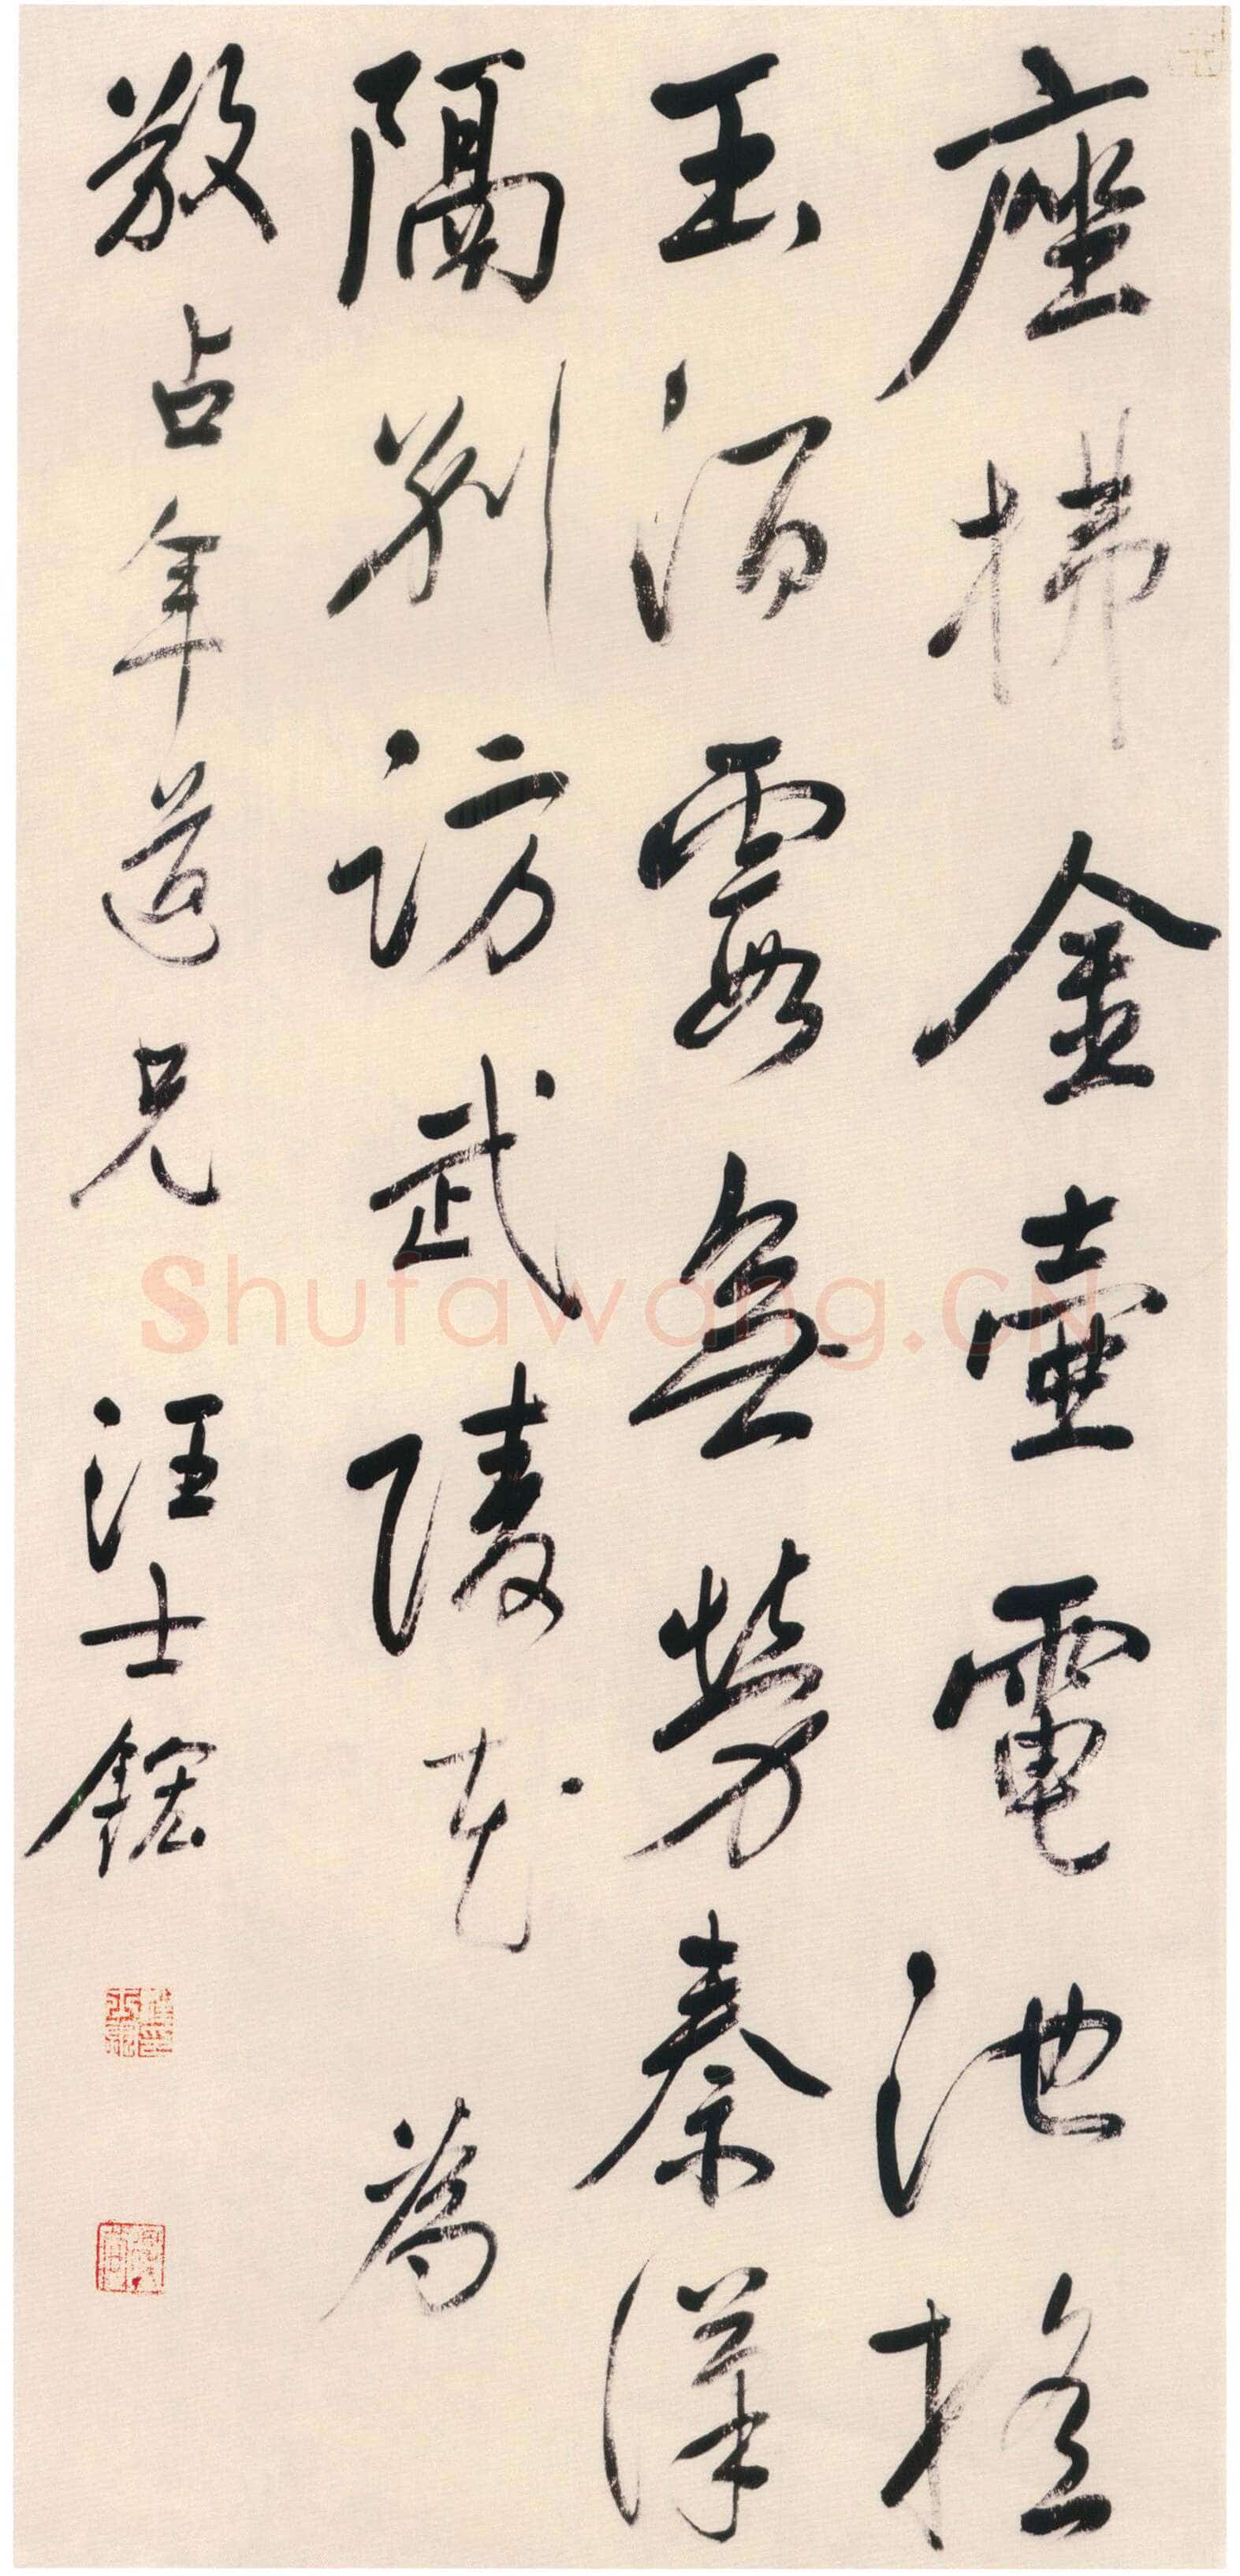 座拂金壺電池搖
玉酒霞無勞秦漢
隔別訪武陵花為
敬占年道兄汪士鋐
Shufawang.CN